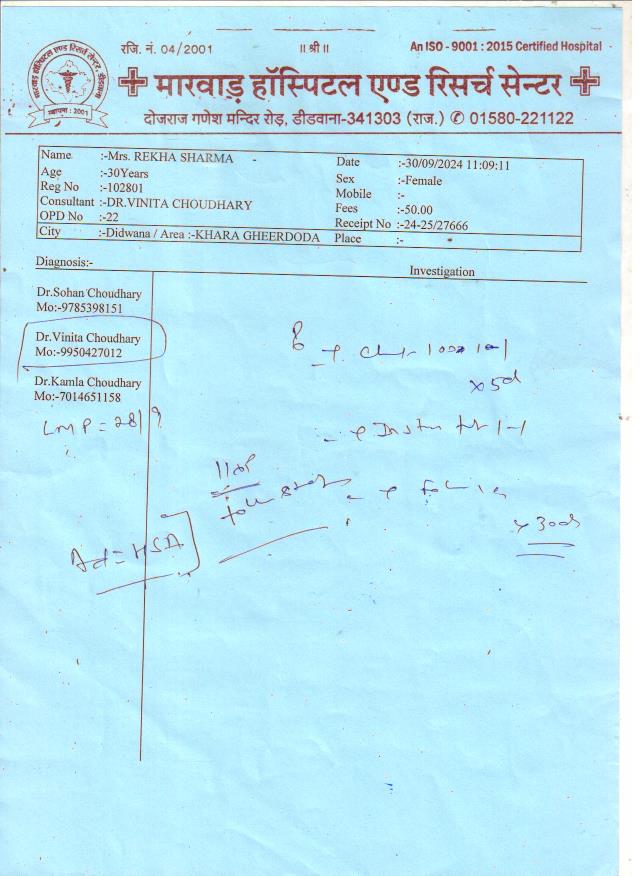 रजि. नं. 04/2001
॥ श्री ॥
An ISO - 9001 : 2015 Certified Hospital
मारवाड़ हॉस्पिटल एण्ड रिसर्च सेन्टर, डीडवाना
स्थापना : 2001
मारवाड़ हॉस्पिटल एण्ड रिसर्च सेन्टर
दोजराज गणेश मन्दिर रोड़, डीडवाना-341303 (राज.) ✆ 01580-221122
Name :-Mrs. REKHA SHARMA Date :-30/09/2024 11:09:11
Age :-30Years Sex :-Female
Reg No :-102801 Mobile :-
Consultant :-DR.VINITA CHOUDHARY Fees :-50.00
OPD No :-22 Receipt No :-24-25/27666
City :-Didwana / Area :-KHARA GHEERDODA Place :-
Diagnosis:- Investigation
Dr.Sohan Choudhary
Mo:-9785398151
Dr.Vinita Choudhary
Mo:-9950427012
Dr.Kamla Choudhary
Mo:-7014651158
LMP = 28/9
x 5d
Ad = HSA
x 30d